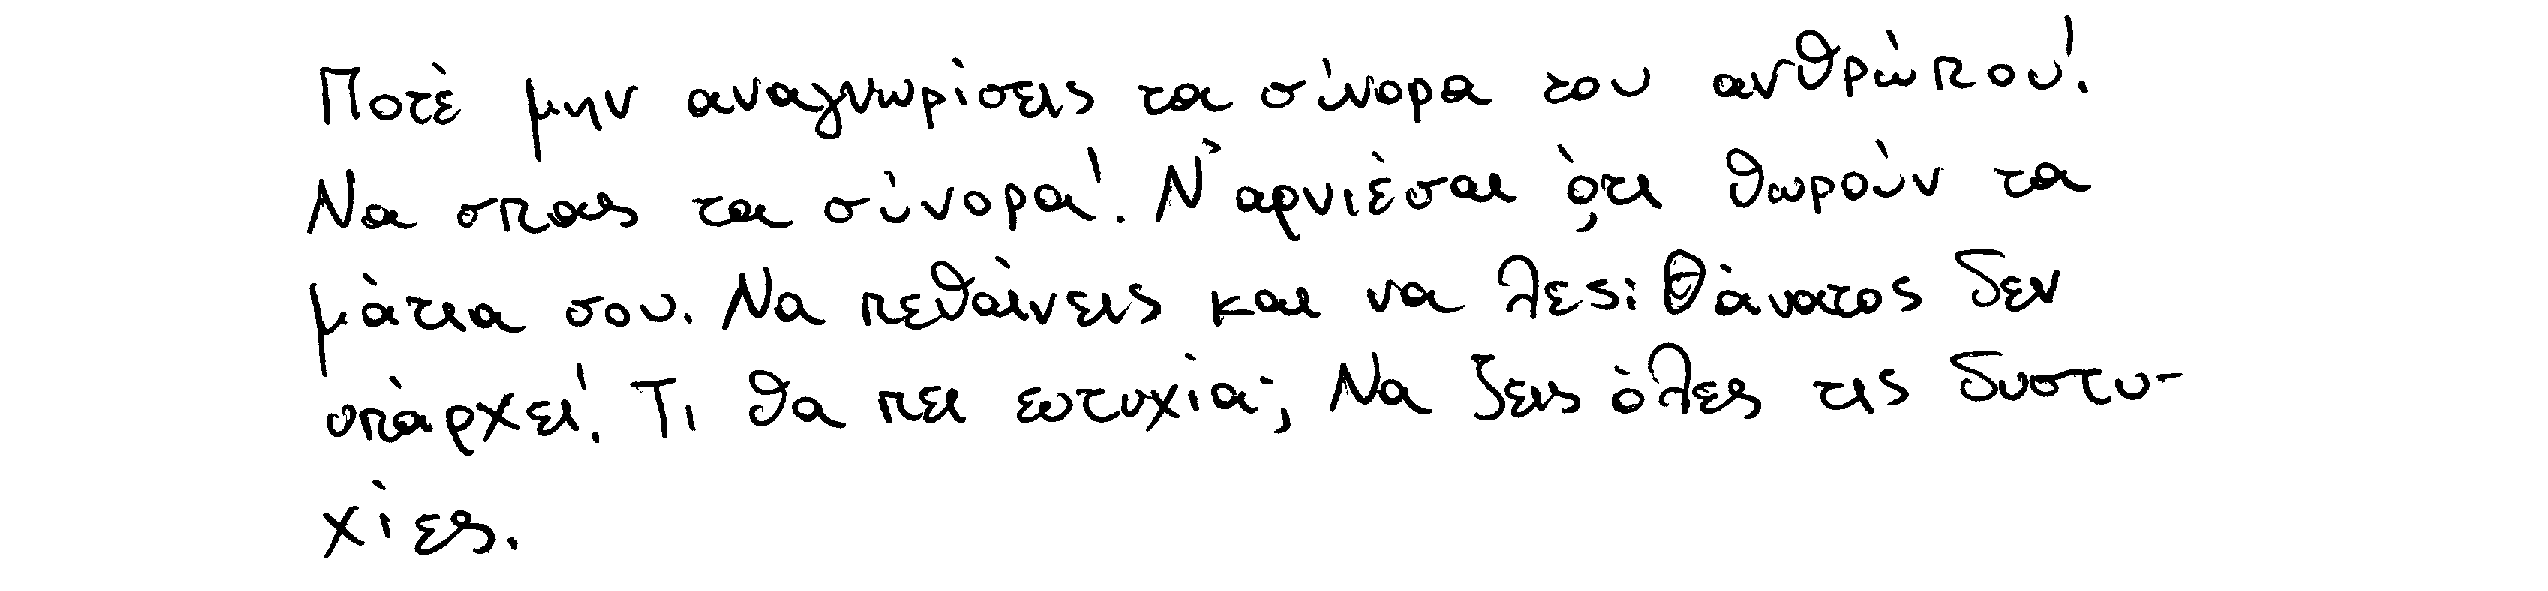 Ποτέ μην αναγνωρίσεις τα σύνορα του ανθρώπου!
Να σπας τα σύνορα! Ν' αρνιέσαι ό,τι θωρούν τα
μάτια σου. Να πεθαίνεις και να λες: Θάνατος δεν
υπάρχει! Τι θα πει ευτυχία; Να ζεις όλες τις δυστυ-
χίες.